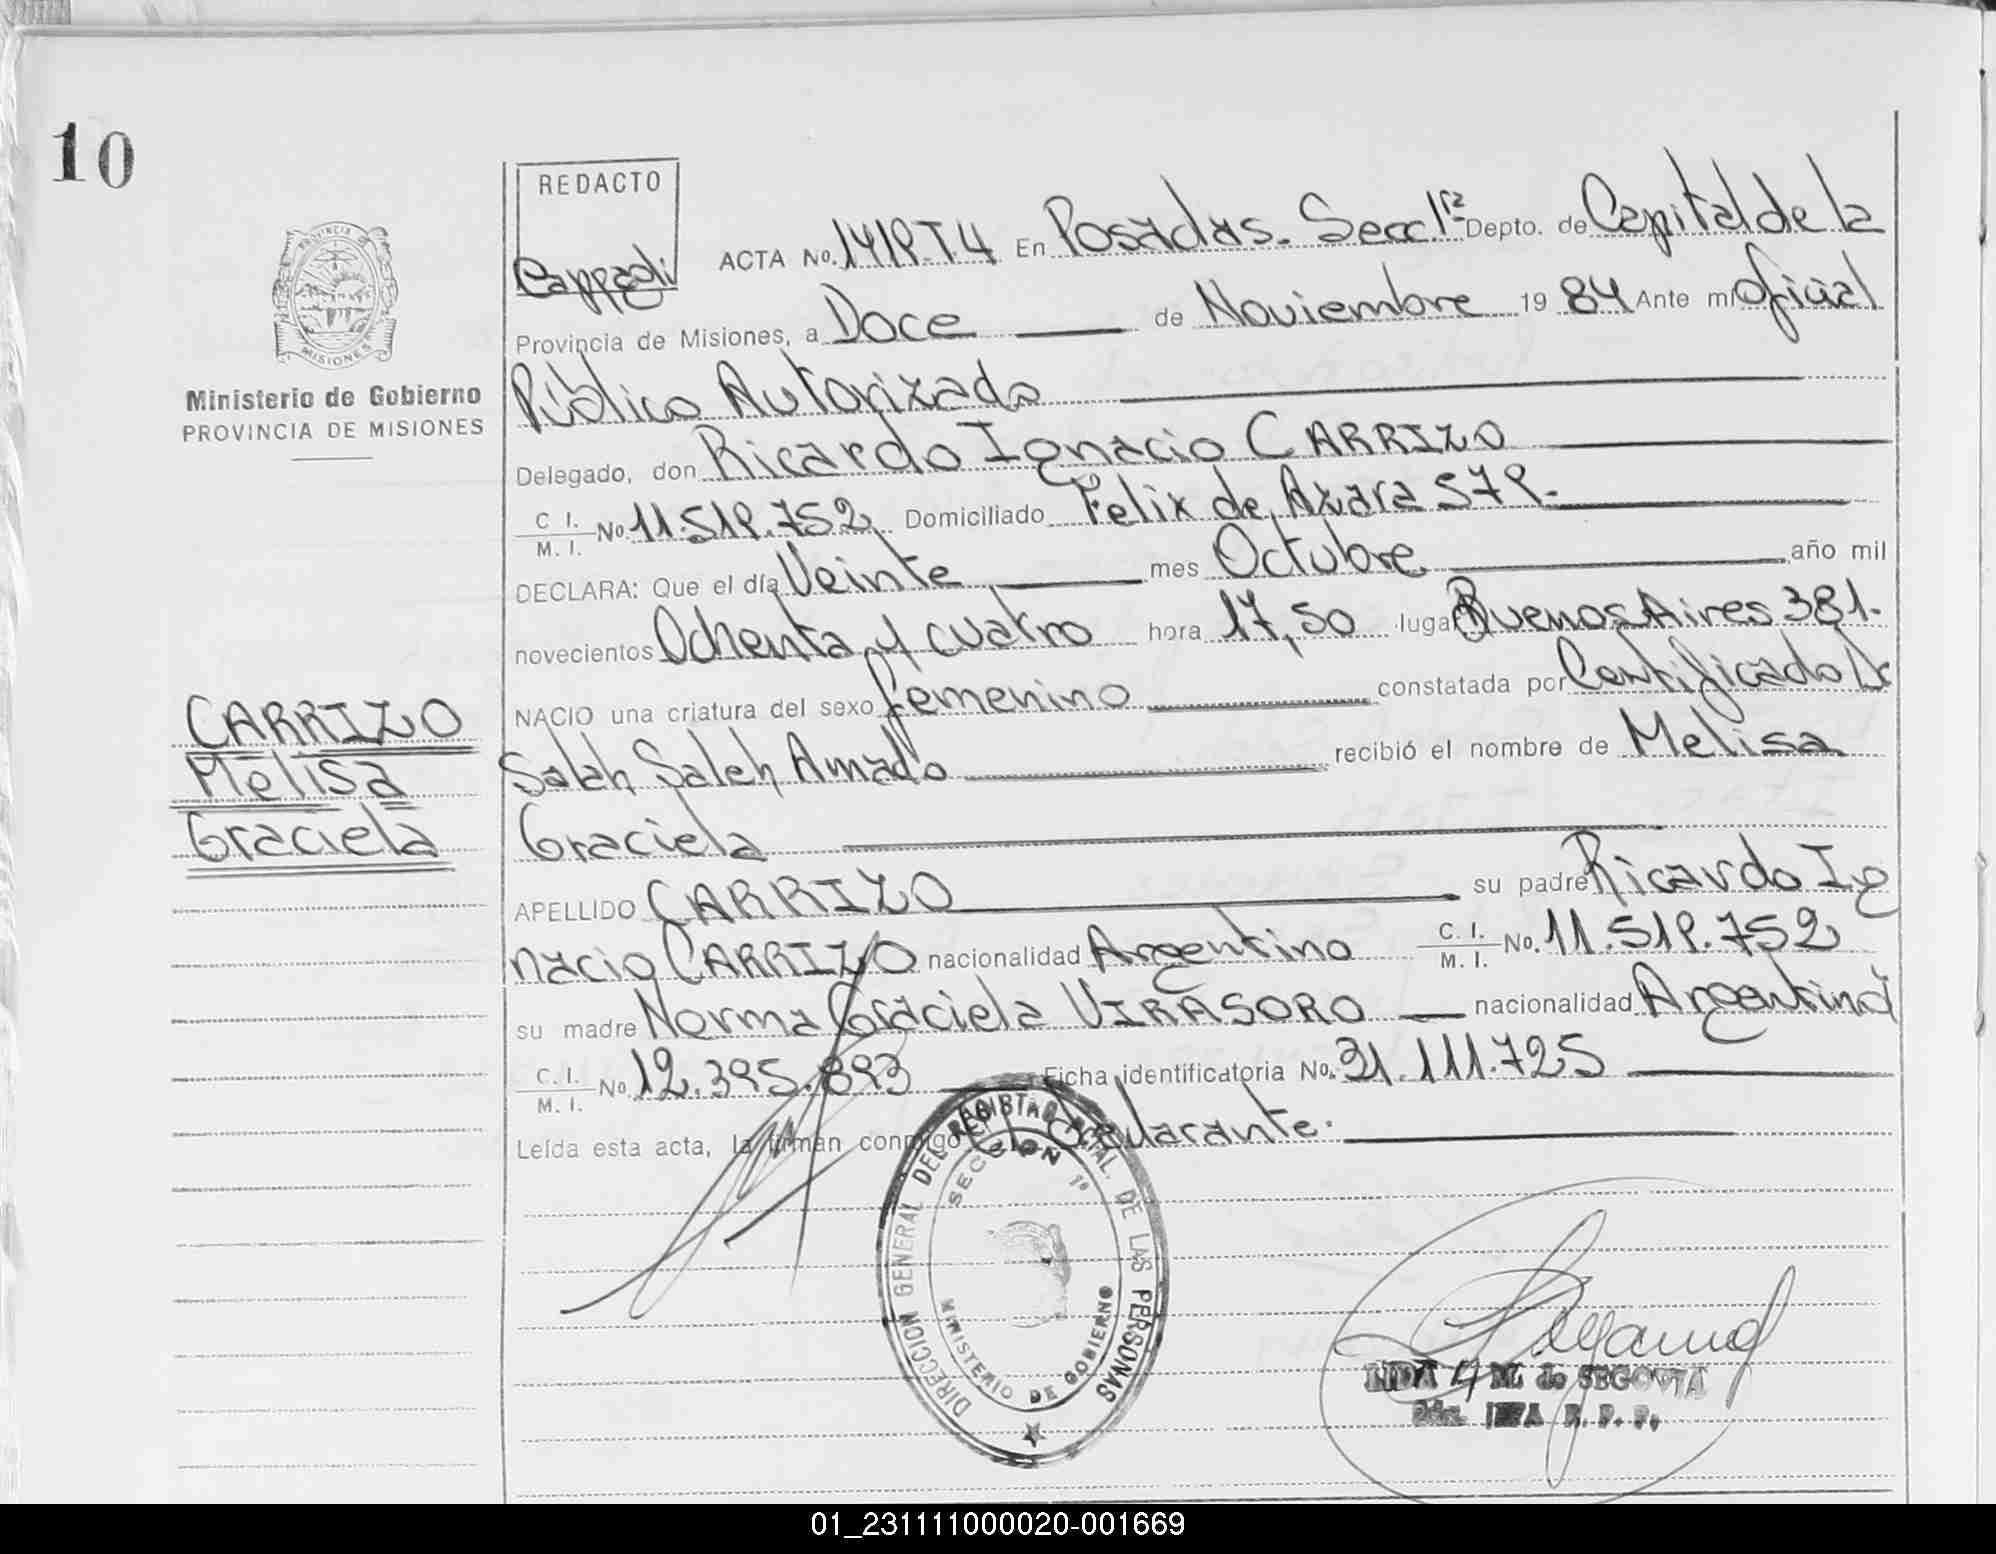 10
REDACTO
Cappagli
ACTA No. 1419-T.4 En Posadas. Secc 1ra Depto. de Capital de la
Provincia de Misiones, a Doce de Noviembre 19 84 Ante mi Oficial
Público Autorizado
Delegado, don Ricardo Ignacio CARRIZO
C. I.
M. I. No. 11.519.752 Domiciliado Felix de Azara 579.-
DECLARA: Que el día Veinte mes Octubre año mil
novecientos Ochenta y cuatro hora 17,50 lugar Buenos Aires 381.
NACIO una criatura del sexo femenino constatada por Certificado Dr
Salah Saleh Amado recibió el nombre de Melisa
Graciela
APELLIDO CARRIZO su padre Ricardo Ig
nacio CARRIZO nacionalidad Argentino C. I.
M. I. No. 11.519.752
su madre Norma Graciela VIRASORO nacionalidad Argentina
C. I.
M. I. No. 12.395.893 Ficha identificatoria No. 31.111.725
Leída esta acta, la firman conmigo el declarante.
PROVINCIA DE
MISIONES
Ministerio de Gobierno
PROVINCIA DE MISIONES
CARRIZO
Melisa
Graciela
DIRECCION GENERAL DEL REGISTRO DE LAS PERSONAS
SECCION 1ª
MINISTERIO DE GOBIERNO
M. de SEGOVIA
01_231111000020-001669